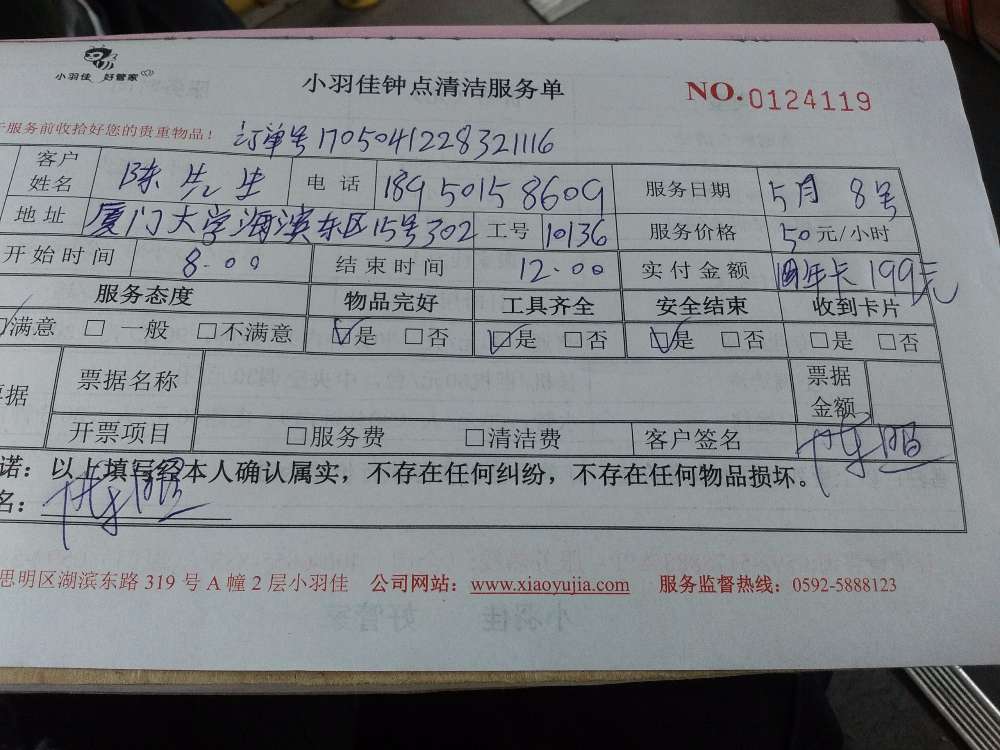 小羽佳 好管家
小羽佳钟点清洁服务单
NO.0124119
服务前收拾好您的贵重物品！
订单号1705041228321116
客户姓名 陈先生 电话 18950158609 服务日期 5月8号
地址 厦门大学海滨东区15号302 工号 10136 服务价格 50元/小时
开始时间 8.00 结束时间 12.00 实付金额 周年卡199元
服务态度 物品完好 工具齐全 安全结束 收到卡片
☑满意 □一般 □不满意 ☑是 □否 ☑是 □否 ☑是 □否 □是 □否
据 票据名称 票据金额
开票项目 □服务费 □清洁费 客户签名
诺：以上填写经本人确认属实，不存在任何纠纷，不存在任何物品损坏。
名：
思明区湖滨东路 319 号 A 幢 2 层小羽佳 公司网站：www.xiaoyujia.com 服务监督热线：0592-5888123